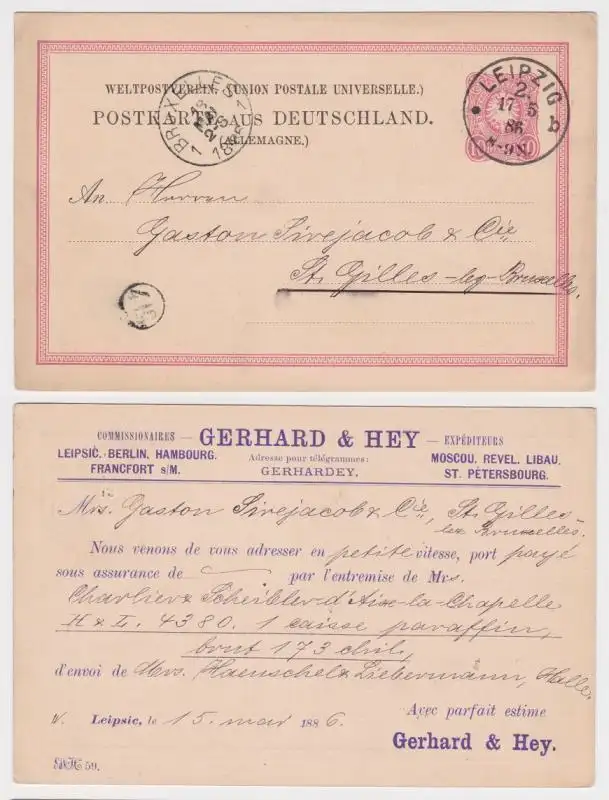 WELTPOSTVEREIN. (UNION POSTALE UNIVERSELLE.)
POSTKARTE AUS DEUTSCHLAND.
(ALLEMAGNE.)
BRUXELLES 1
1886
LEIPZIG
2.
17 5
86
-9N.
b
10
An Herren
Gaston Sirejacob & Cie
St. Gilles-lez-Bruxelles.
COMMISSIONAIRES — GERHARD & HEY — EXPÉDITEURS
LEIPSIC. BERLIN, HAMBOURG. Adresse pour télégrammes: MOSCOU. REVEL. LIBAU.
FRANCFORT s/M. GERHARDEY. ST. PÉTERSBOURG.
Mrs. Gaston Sirejacob & Cie, St. Gilles-
lez Bruxelles.
Nous venons de vous adresser en petite vitesse, port payé
sous assurance de — par l'entremise de Mrs.
Charlier & Scheibler d'Aix-la-Chapelle
H & L. 4380. 1 caisse paraffin,
brut 173 chil,
d'envoi de Mrs. Haenschel & Liebermann, Halle
Leipsic, le 15. mai 1886. Avec parfait estime
Gerhard & Hey.
59.